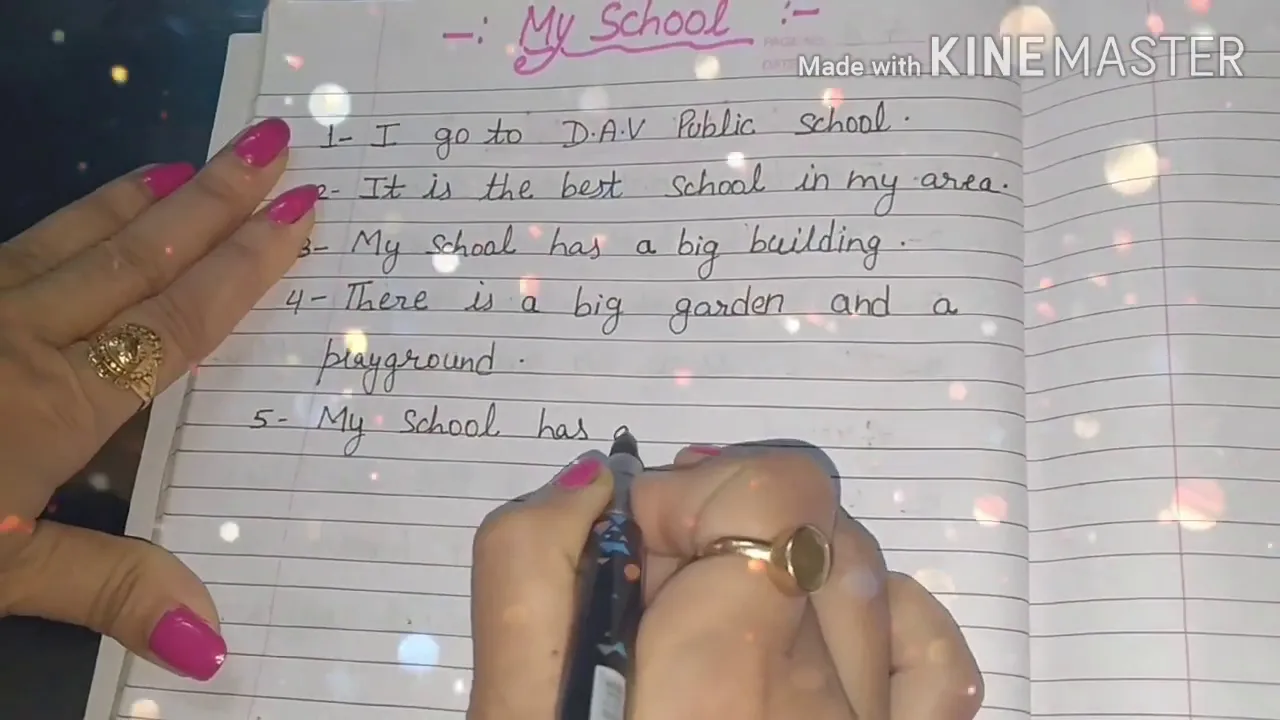 -: My School :-
PAGE NO.
Made with KINEMASTER
1- I go to D.A.V Public school.
2- It is the best School in my area.
3- My School has a big building.
4- There is a big garden and a
playground.
5- My School has a